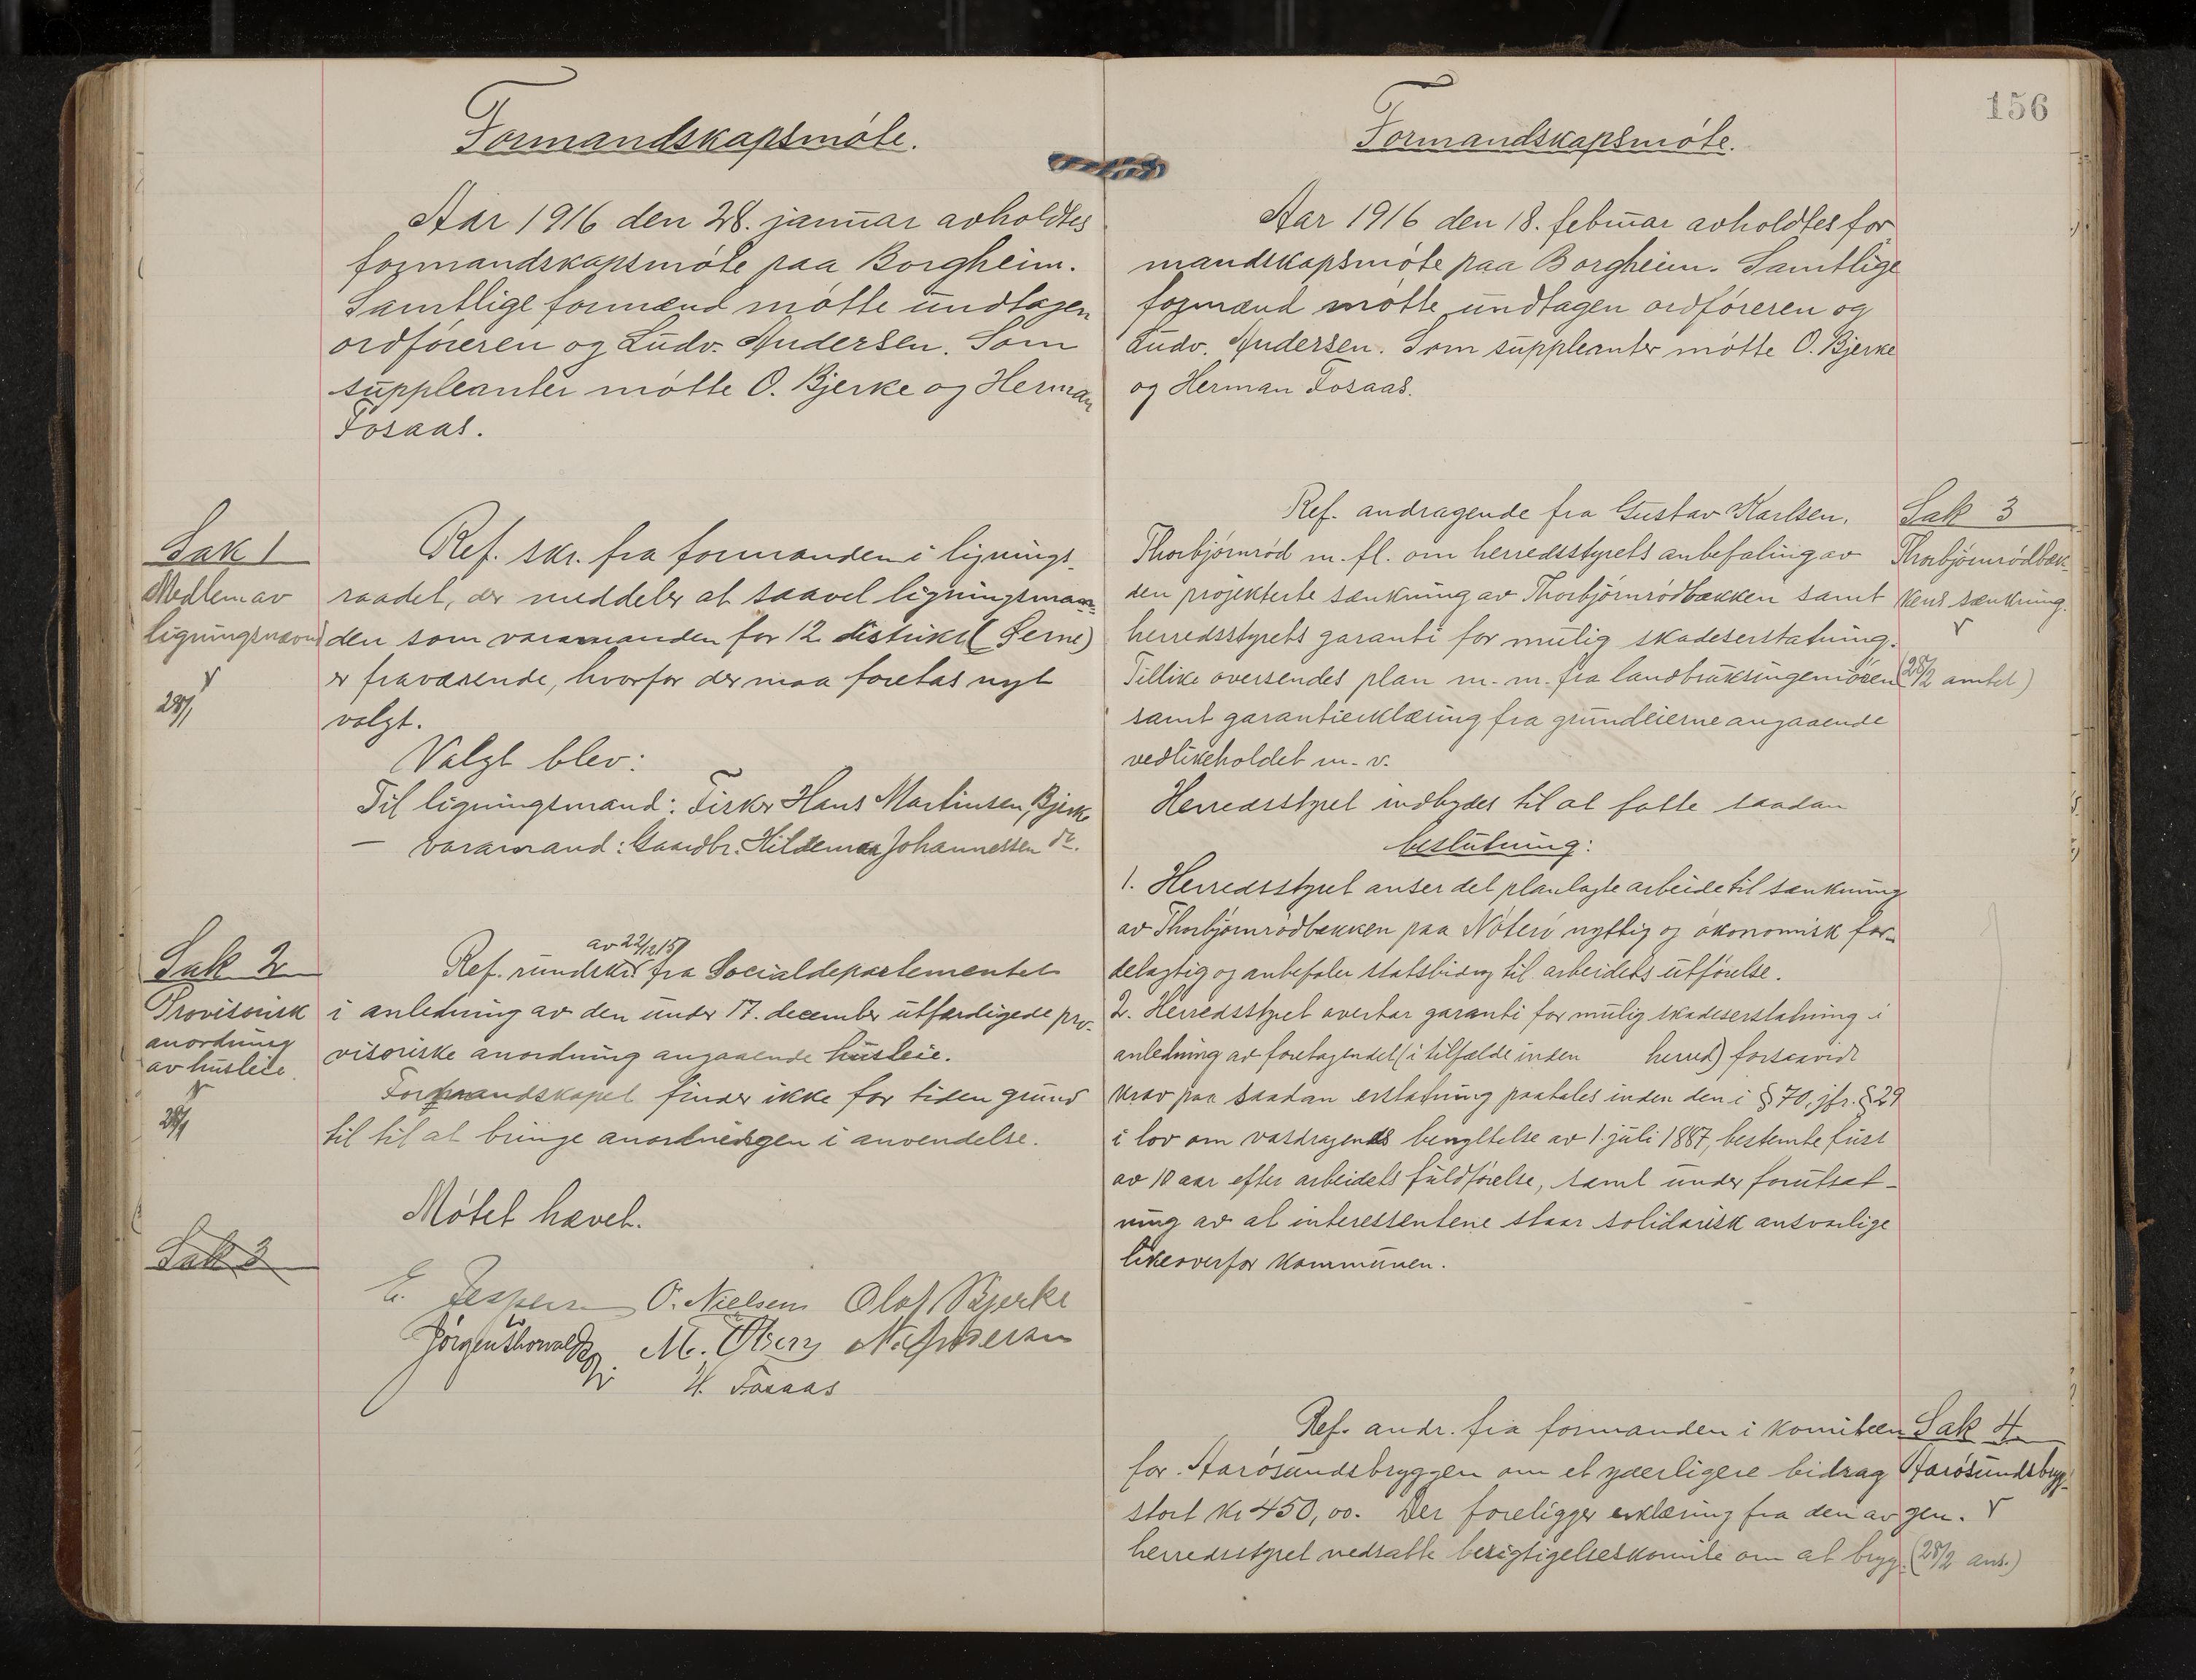 Formandskapsmøte.
Aar 1916 den 28. januar avholdtes
formandskapsmøte paa Borgheim.
Samtlige formænd møtte undtagen
ordføreren og Ludv. Andersen. Som
suppleanter møtte O. Bjerke og Herman
Fosaas.
Sak 1
Medlem av
ligningsnævnd
28/1
Ref. skr. fra formanden i lignings-
raadet, der meddeler at saavel ligningsman-
den som varamanden for 12 distrikt (Serne)
er fraværende, hvorfor der maa foretas nyt
valgt.
Valgt blev:
Til ligningsmand: Fisker Hans Martinsen, Bjerke
— varamand: Gaardbr. Hildemar Johannessen do.
Sak 2
Provisorisk
anordning
av husleie.
28/1
av 22/12 15
Ref. rundskr. fra Socialdepartementet
i anledning av den under 17. december utfærdigede pro-
visoriske anordning angaaende husleie.
Formandskapet finder ikke for tiden grund
til til at bringe anordningen i anvendelse.
Møtet hævet.
Sak 3
E. Jespersen O. Nielsen Olaf Bjerke
Jørgen Thorvaldsen M. Olsen N. Andersen
H. Fosaas
156
Formandskapsmøte.
Aar 1916 den 18. februar avholdtes for
mandskapsmøte paa Borgheim. Samtlige
formænd møtte undtagen ordføreren og
Ludv. Andersen. Som suppleanter møtte O. Bjerke
og Herman Fosaas.
Sak 3
Thorbjørnrødbæk-
kens sænkning.
(28/2 amtet)
Ref. andragende fra Gustav Karlsen,
Thorbjørnrød m. fl. om herredsstyrets anbefaling av
den projekterte sænkning av Thorbjørnrødbækken samt
herredsstyrets garanti for mulig skadeserstatning.
Tillike oversendes plan m. m. fra landbruksingeniøren
samt garantierklæring fra grundeierne angaaende
vedlikeholdet m. v.
Herredsstyret indbydes til at fatte saadan
beslutning:
1. Herredsstyret anser det planlagte arbeide til sænkning
av Thorbjørnrødbækken paa Nøterø nyttig og økonomisk for-
delagtig og anbefaler statsbidrag til arbeidets utførelse.
2. Herredsstyret overtar garanti for mulig skadeserstatning i
anledning av foretagendet (i tilfælde inden herred) forsaavidt
krav paa saadan erstatning paatales inden den i § 70, jfr. § 29
i lov om vasdragenes benyttelse av 1. juli 1887, bestemte frist
av 10 aar efter arbeidets fuldførelse, samt under forutsæt-
ning av at interessentene staar solidarisk ansvarlige
likeoverfor kommunen.
Sak 4
Aarøsundsbryg-
gen.
(28/2 ans.)
Ref. andr. fra formanden i komiteen
for Aarøsundsbryggen om et yderligere bidrag
stort kr 450,00. Der foreligger erklæring fra den av
herredsstyret nedsatte besigtigelseskomite om at bryg-